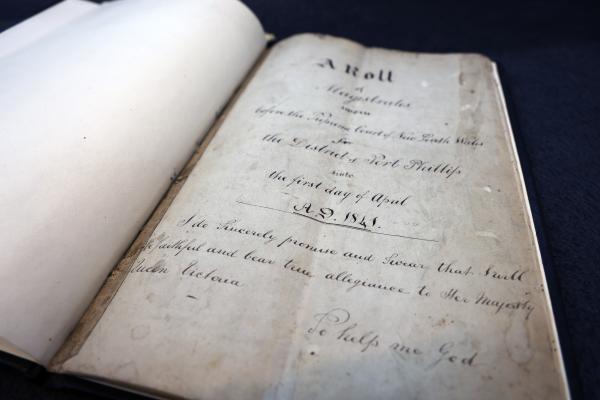 A Roll
of
Magistrates
sworn
before the Supreme Court of New South Wales
for
the District of Port Phillip
since
the first day of April
A.D. 1841.
I do Sincerely promise and Swear that I will
be faithful and bear true allegiance to Her Majesty
Queen Victoria
So help me God